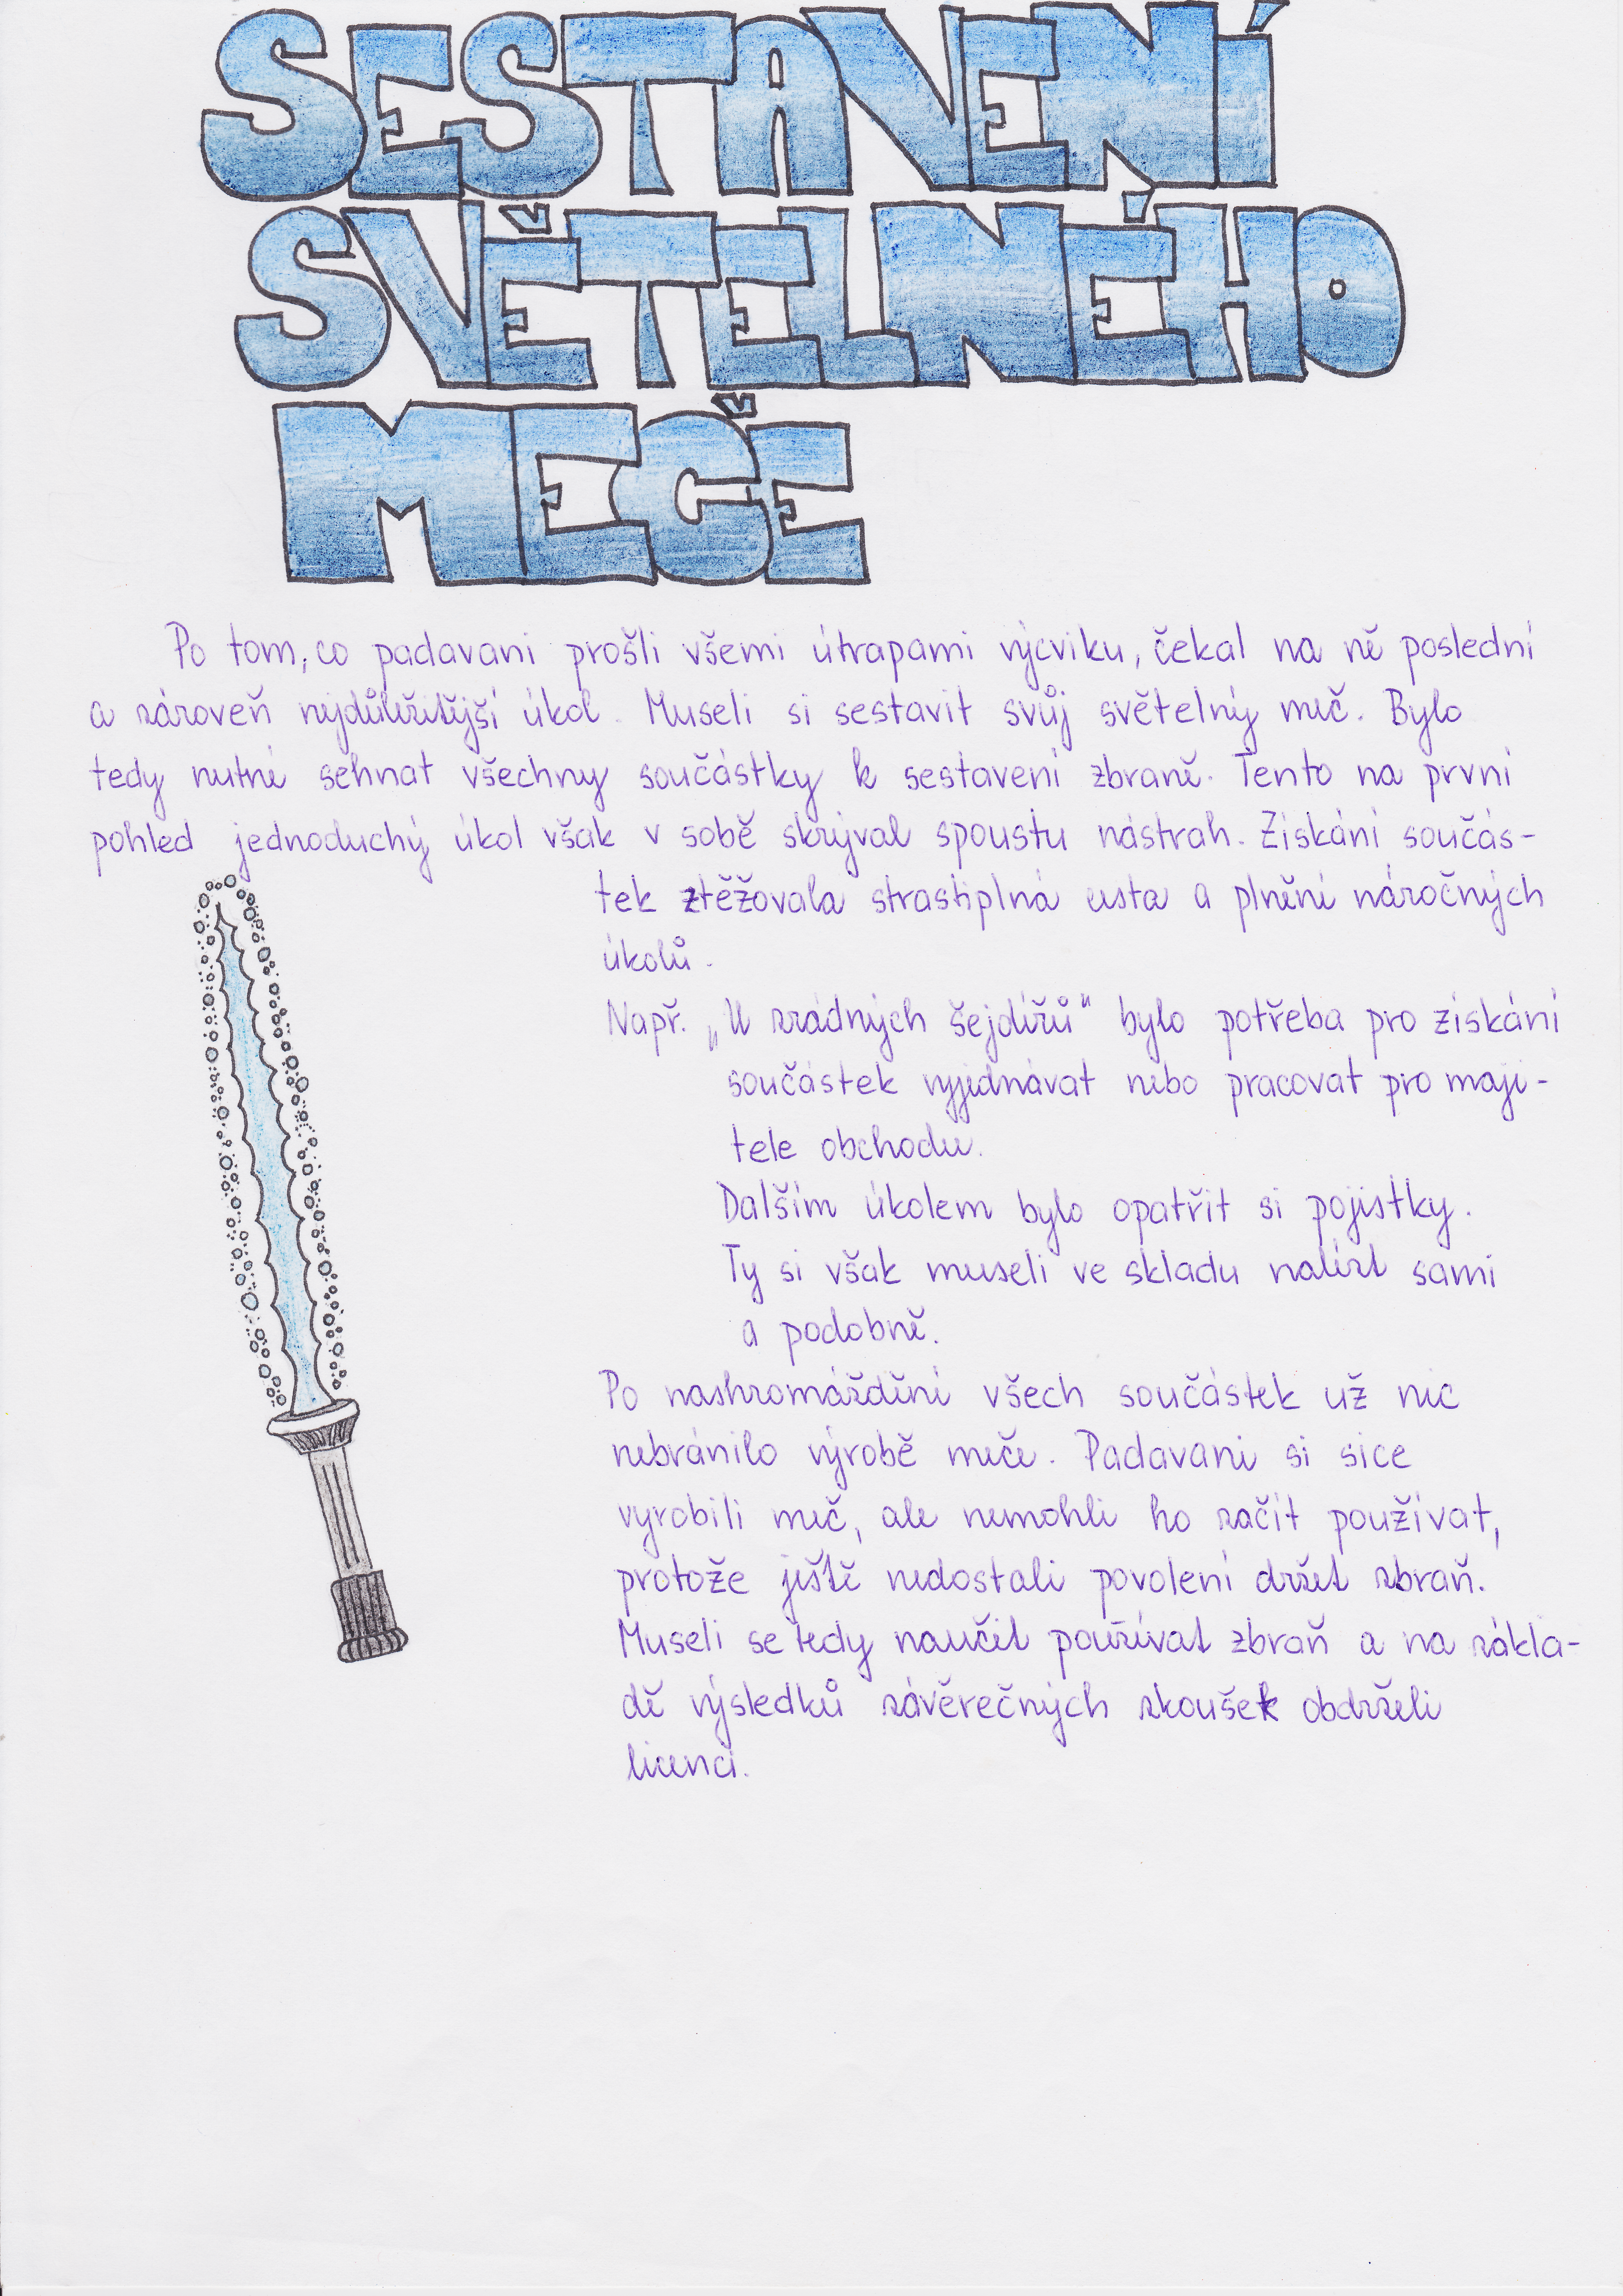 SESTAVENÍ
SVĚTELNÉHO
MEČE
Po tom, co padavani prošli všemi útrapami výcviku, čekal na ně poslední
a zároveň nejdůležitější úkol. Museli si sestavit svůj světelný meč. Bylo
tedy nutné sehnat všechny součástky k sestavení zbraně. Tento na první
pohled jednoduchý úkol však v sobě skrýval spoustu nástrah. Získání součás-
tek ztěžovala strastiplná cesta a plnění náročných
úkolů.
Např. „U zrádných šejdířů" bylo potřeba pro získání
součástek vyjednávat nebo pracovat pro maji-
tele obchodu.
Dalším úkolem bylo opatřit si pojistky.
Ty si však museli ve skladu nalézt sami
a podobně.
Po nashromáždění všech součástek už nic
nebránilo výrobě meče. Padavani si sice
vyrobili meč, ale nemohli ho začít používat,
protože ještě nedostali povolení držet zbraň.
Museli se tedy naučit používat zbraň a na zákla-
dě výsledků závěrečných zkoušek obdrželi
licenci.